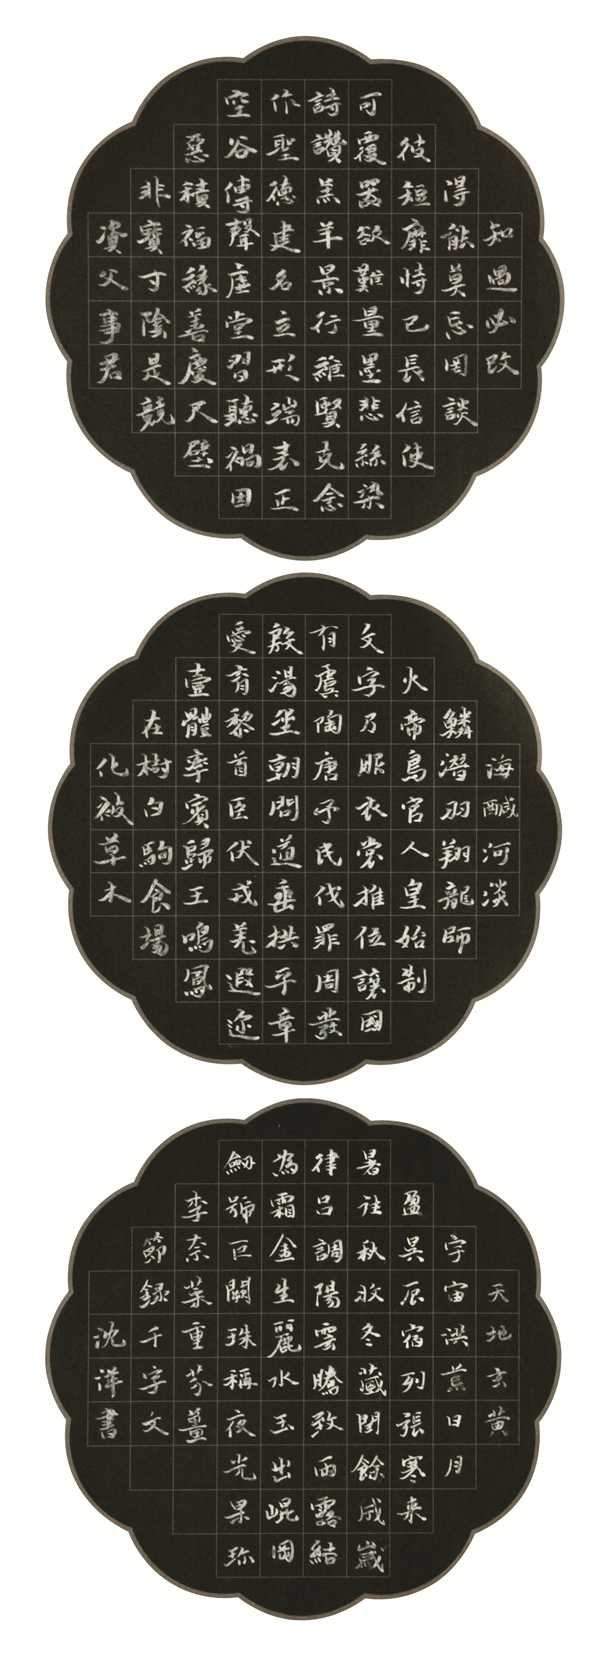 知過必改
得能莫忘罔談
彼短靡恃己長信使
可覆器欲難量墨悲絲染
詩讚羔羊景行維賢克念
作聖德建名立形端表正
空谷傳聲虛堂習聽禍因
惡積福緣善慶尺璧
非寶寸陰是競
資父事君
海鹹河淡
鱗潛羽翔龍師
火帝鳥官人皇始制
文字乃服衣裳推位讓國
有虞陶唐弔民伐罪周發
殷湯坐朝問道垂拱平章
愛育黎首臣伏戎羌遐迩
壹體率賓歸王鳴鳳
在樹白駒食場
化被草木
天地玄黃
宇宙洪荒日月
盈昃辰宿列張寒来
暑往秋收冬藏閏餘成歲
律呂調陽雲騰致雨露結
為霜金生麗水玉出崐岡
劍號巨闕珠稱夜光果珍
李奈菜重芥薑
節録千字文
沈萍書